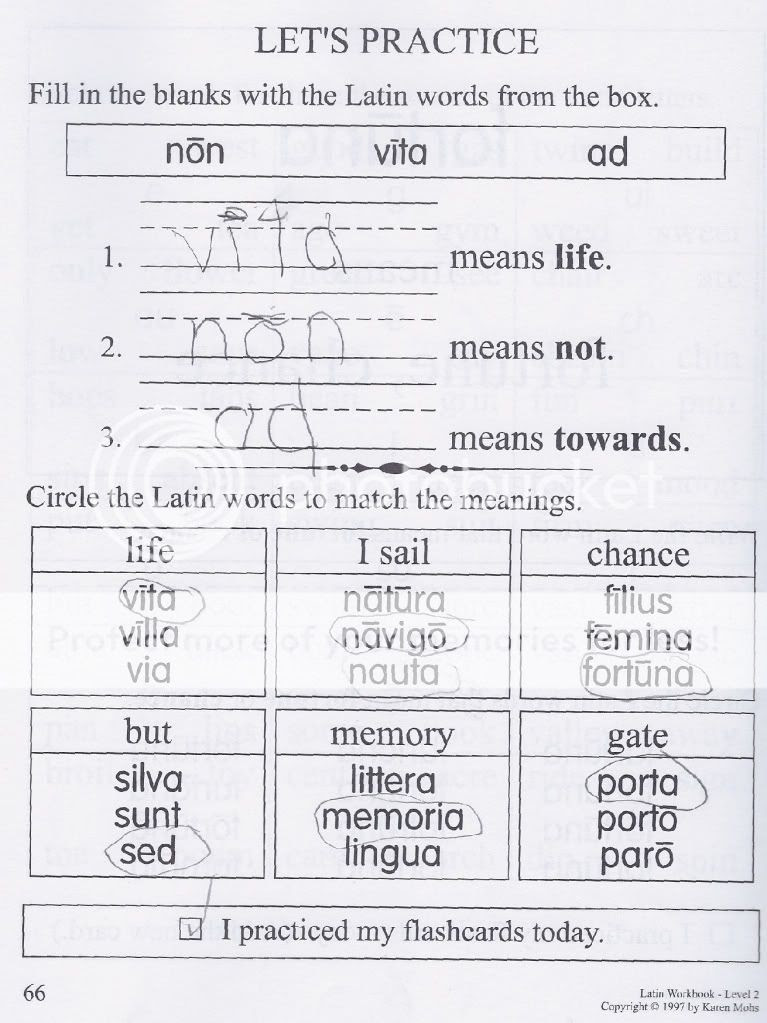 LET'S PRACTICE
Fill in the blanks with the Latin words from the box.
nōn vīta ad
1. vīta means life.
2. nōn means not.
3. ad means towards.
Circle the Latin words to match the meanings.
life I sail chance
vīta nātūra fīlius
vīlla nāvigō fēmina
via nauta fortūna
but memory gate
silva littera porta
sunt memoria portō
sed lingua parō
I practiced my flashcards today.
66
Latin Workbook - Level 2
Copyright © 1997 by Karen Mohs
photobucket
Protect more of your memories for less!